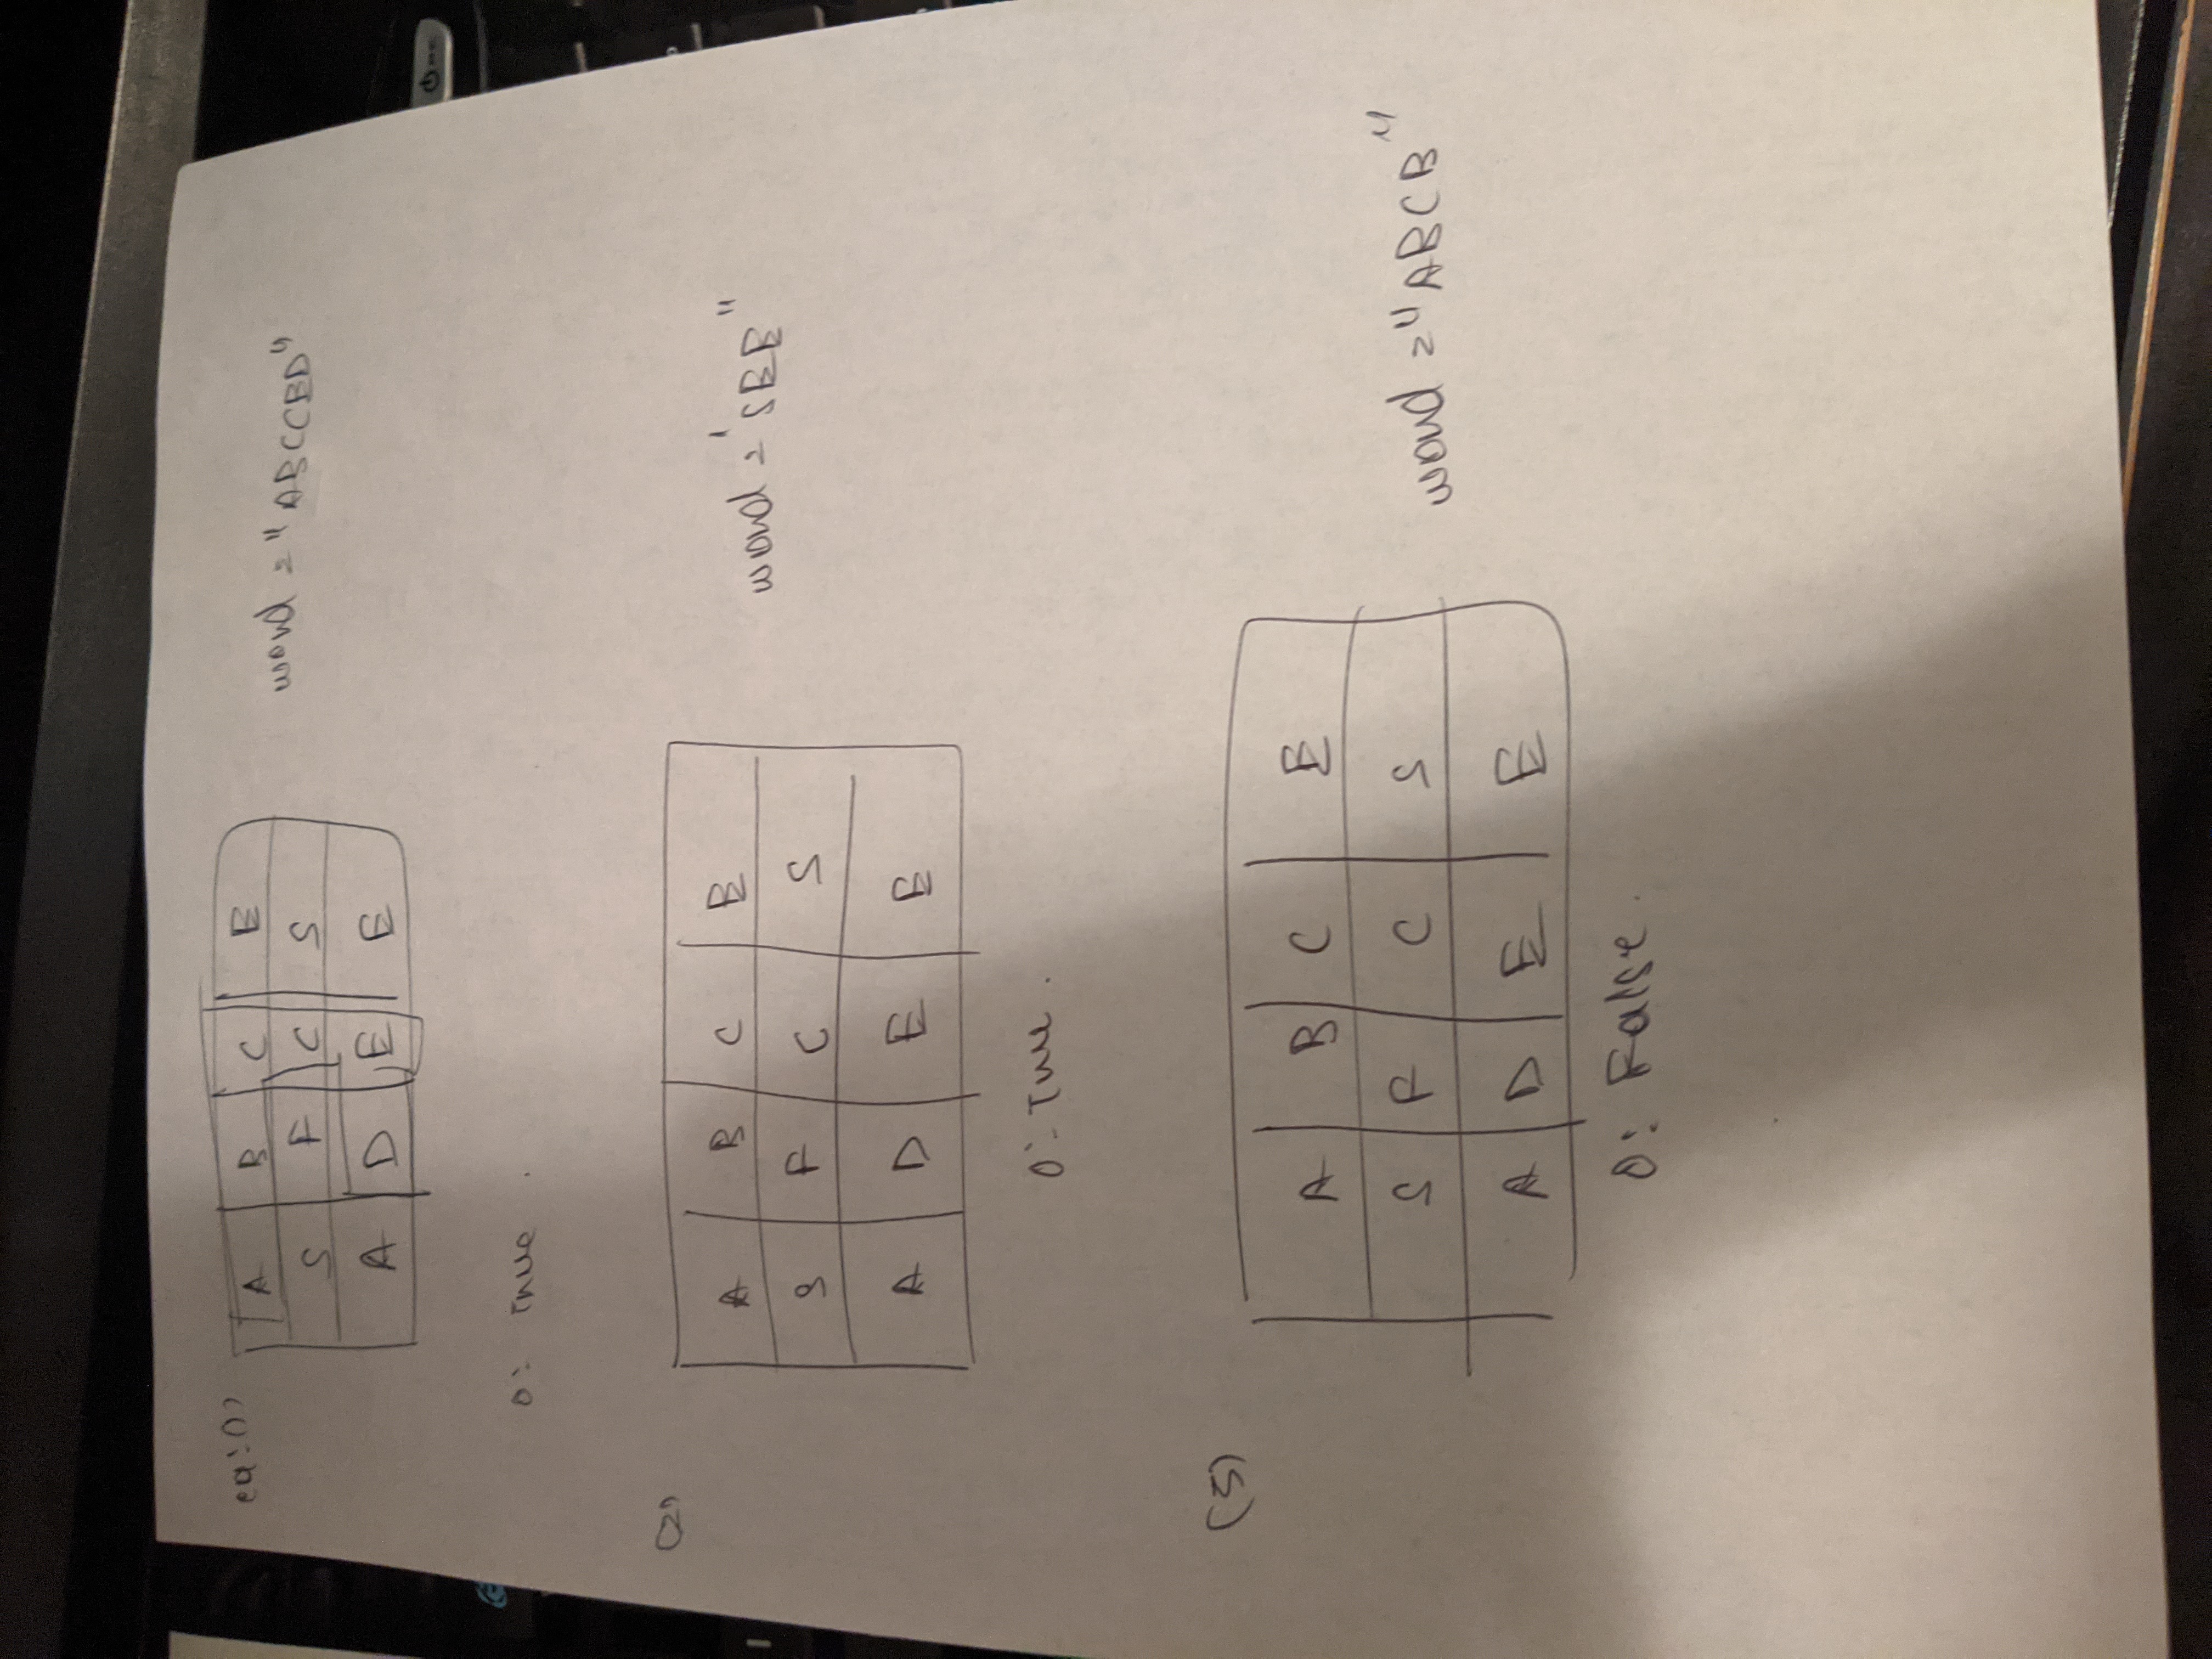 eg:(1)
A B C E
S F C S
A D E E
word = "ABCCED"
O: True.
(2)
A B C E
S F C S
A D E E
word = 'SEE"
O: True.
(3)
A B C E
S F C S
A D E E
word = "ABCB"
O: False.